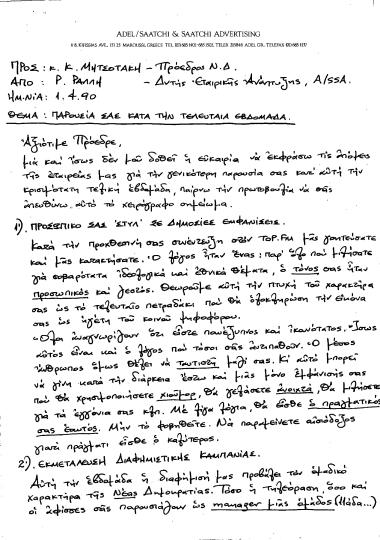 ADEL/SAATCHI & SAATCHI ADVERTISING
ΠΡΟΣ: κ. Κ. ΜΗΤΣΟΤΑΚΗ - Πρόεδρον Ν.Δ.
ΑΠΟ: Ρ. ΡΑΛΛΗ - Δντής Εταιρικής Ανάπτυξης, A/SSA.
ΗΜ.ΝΙΑ: 1.4.90
ΘΕΜΑ: ΠΑΡΟΥΣΙΑ ΣΑΣ ΚΑΤΑ ΤΗΝ ΤΕΛΕΥΤΑΙΑ ΕΒΔΟΜΑΔΑ.
Αξιότιμε Πρόεδρε,
μιά καί ίσως δέν μού δοθεί ή ευκαιρία νά εκφράσω τίς απόψεις
τής εταιρείας μας γιά τήν γενικότερη παρουσία σας κατ' αυτή τήν
κρισιμότατη τελική εβδομάδα, παίρνω τήν πρωτοβουλία νά σάς
απευθύνω αυτό τό χειρόγραφο σημείωμα.
1) ΠΡΟΣΩΠΙΚΟ ΣΑΣ "ΣΤΥΛ" ΣΕ ΔΗΜΟΣΙΕΣ ΕΜΦΑΝΙΣΕΙΣ.
Κατά τήν προχθεσινή σας συνέντευξη στόν TOP.FM μάς γοητεύσατε
καί μάς κατακτήσατε. Ο λόγος ήταν ένας: παρ' όλο πού μιλήσατε
γιά σοβαρότατα ιδεολογικά καί εθνικά θέματα, ο τόνος σας ήταν
προσωπικός καί ζεστός. Θεωρούμε αυτή τήν πτυχή τού χαρακτήρα
σας ώς τό τελευταίο πετραδάκι πού θά ολοκληρώσει τήν εικόνα
σας ώς ηγέτη τού κοινού ψηφοφόρου.
Όλοι αναγνωρίζουν ότι είστε πανέξυπνος καί ικανότατος. Ίσως
αυτός είναι καί ο λόγος πού τόσοι σάς αντιπαθούν. Ο μέσος
άνθρωπος όμως θέλει νά ταυτιστή μαζί σας. Κι αυτό μπορεί
νά γίνη κατά τήν διάρκεια έστω καί μιάς μόνο εμφάνισής σας
πού θά χρησιμοποιήσετε χιούμορ, θά γελάσετε ανοιχτά, θά μιλήσετε
γιά τά εγγόνια σας κλπ. Μέ λίγα λόγια, θά είσθε ο πραγματικός
σας εαυτός. Μήν τό φοβηθείτε. Νά παραμείνετε αισιόδοξος
γιατί πράγματι είσθε ο καλύτερος.
2) ΕΚΜΕΤΑΛΛΕΥΣΗ ΔΙΑΦΗΜΙΣΤΙΚΗΣ ΚΑΜΠΑΝΙΑΣ.
Αυτή τήν εβδομάδα ή διαφήμισή μας προβάλει τόν ομαδικό
χαρακτήρα τής Νέας Δημοκρατίας. Τόσο ή τηλεόραση, όσο καί
οι αφίσσες σάς παρουσιάζουν ώς manager μιάς ομάδος